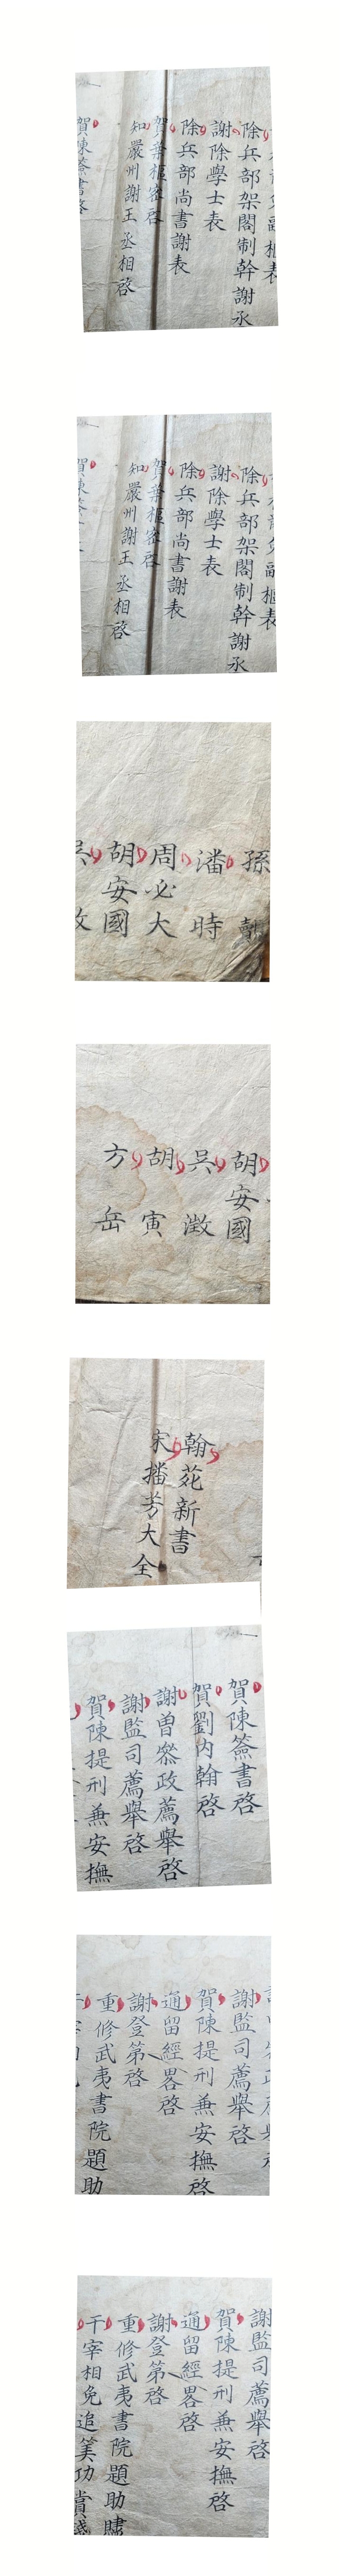 除兵部架閣制幹謝丞
謝除學士表
除兵部尚書謝表
賀葉樞密啓
知嚴州謝王丞相啓
賀陳簽書啓
樞表
除兵部架閣制幹謝丞
謝除學士表
除兵部尚書謝表
賀葉樞密啓
知嚴州謝王丞相啓
賀陳
孫覿
潘時
周必大
胡安國
胡安國
吳澂
胡寅
方岳
翰苑新書
宋播芳大全
賀陳簽書啓
賀劉內翰啓
謝曽叅政薦舉啓
謝監司薦舉啓
賀陳提刑兼安撫
謝監司薦舉啓
賀陳提刑兼安撫啓
通留經畧啓
謝登第啓
重修武夷書院題助
謝監司薦舉啓
賀陳提刑兼安撫啓
通留經畧啓
謝登第啓
重修武夷書院題助
干宰相免追筭功賞錢